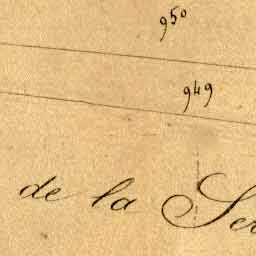 950
949
de la Ser